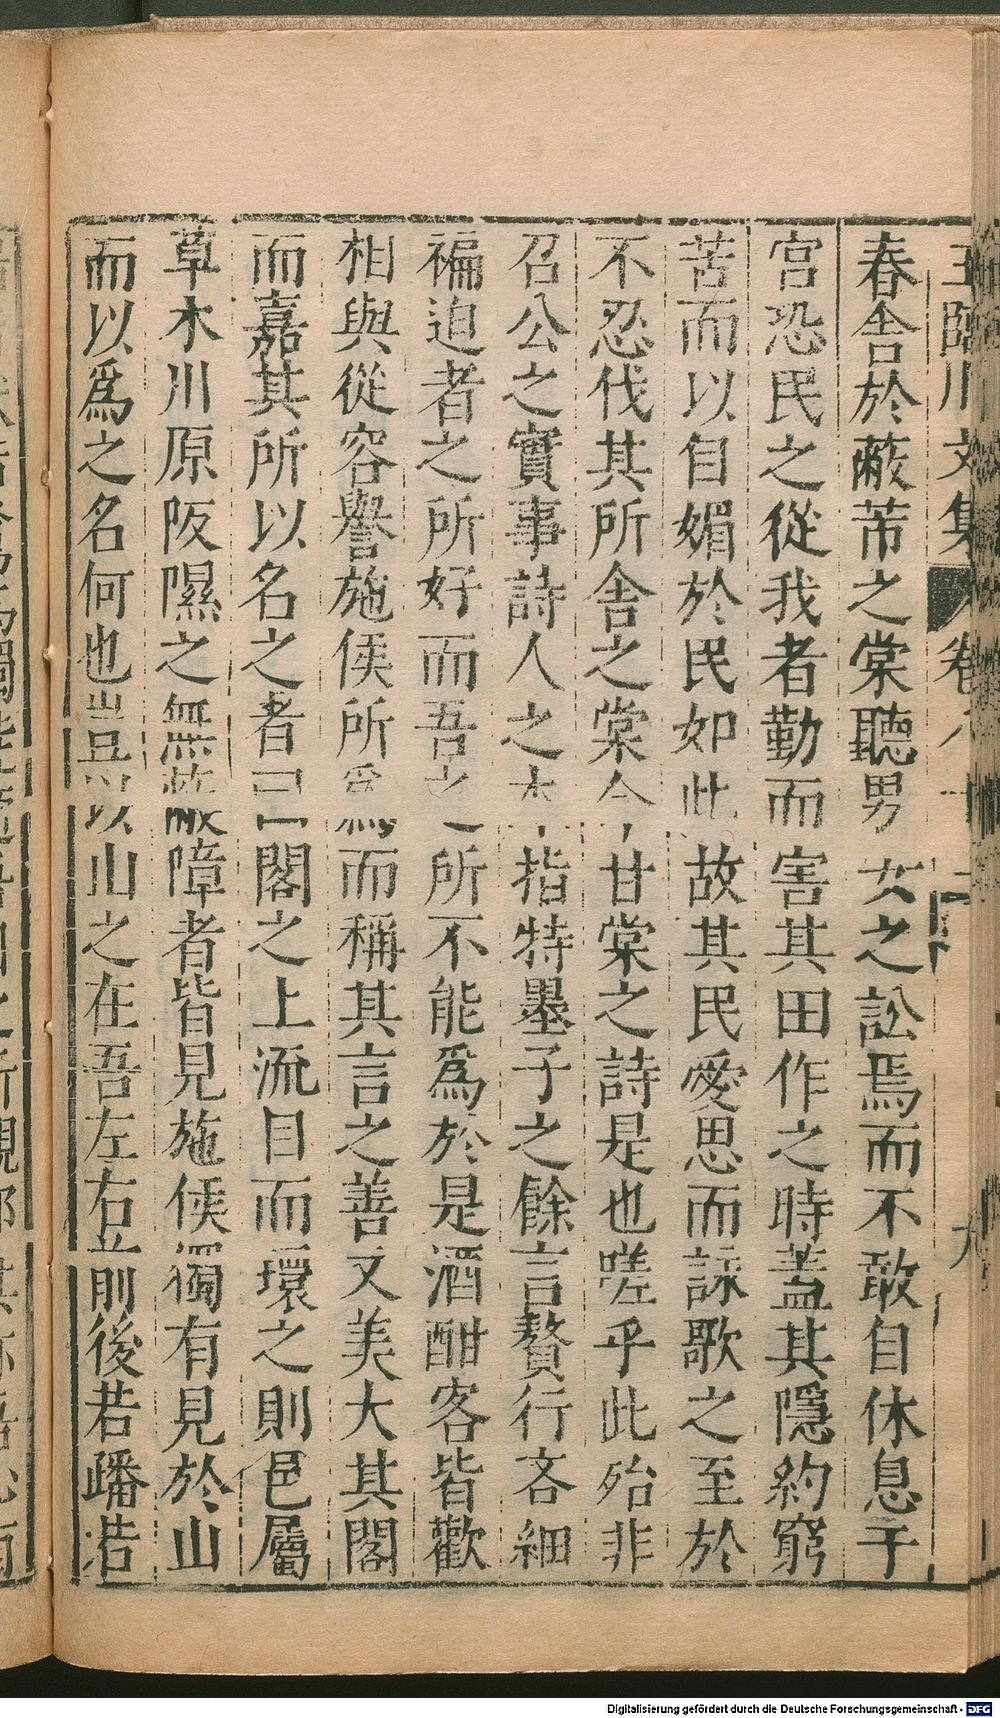 王臨川文集 卷八十二 九
春舍於蔽芾之棠聽男女之訟焉而不敢自休息于
宮恐民之從我者勤而害其田作之時蓋其隱約窮
苦而以自媚於民如此故其民愛思而詠歌之至於
不忍伐其所舍之棠今甘棠之詩是也嗟乎此殆非
召公之實事詩人之本指特墨子之餘言贅行吝細
褊迫者之所好而吾之所不能為於是酒酣客皆歡
相與從容譽施侯所為而稱其言之善又美大其閣
而嘉其所以名之者曰閣之上流目而環之則邑屬
草木川原阪隰之無蔽障者皆見施侯獨有見於山
而以為之名何也豈以山之在吾左右前後若蹯若
Digitalisierung gefördert durch die Deutsche Forschungsgemeinschaft - DFG